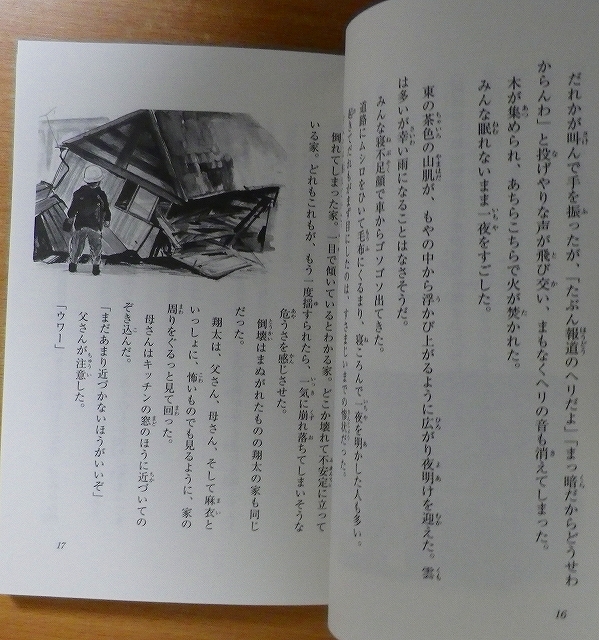 だれかが叫んで手を振ったが、「たぶん報道のヘリだよ」「まっ暗だからどうせわ
からんわ」と投げやりな声が飛び交い、まもなくヘリの音も消えてしまった。
木が集められ、あちらこちらで火が焚かれた。
みんな眠れないまま一夜をすごした。
東の茶色の山肌が、もやの中から浮かび上がるように広がり夜明けを迎えた。雲
は多いが幸い雨になることはなさそうだ。
みんな寝不足顔で車からゴソゴソ出てきた。
道路にムシロをひいて毛布にくるまり、寝ころんで一夜を明かした人も多い。
すさまじいまでの惨状だった。
16
倒れてしまった家。一目で傾いているとわかる家。どこか壊れて不安定に立って
いる家。どれもこれもが、もう一度揺すられたら、一気に崩れ落ちてしまいそうな
危うさを感じさせた。
倒壊はまぬがれたものの翔太の家も同じ
だった。
翔太は、父さん、母さん、そして麻衣と
いっしょに、怖いものでも見るように、家の
周りをぐるっと見て回った。
母さんはキッチンの窓のほうに近づいての
ぞき込んだ。
「まだあまり近づかないほうがいいぞ」
父さんが注意した。
「ウワー」
17